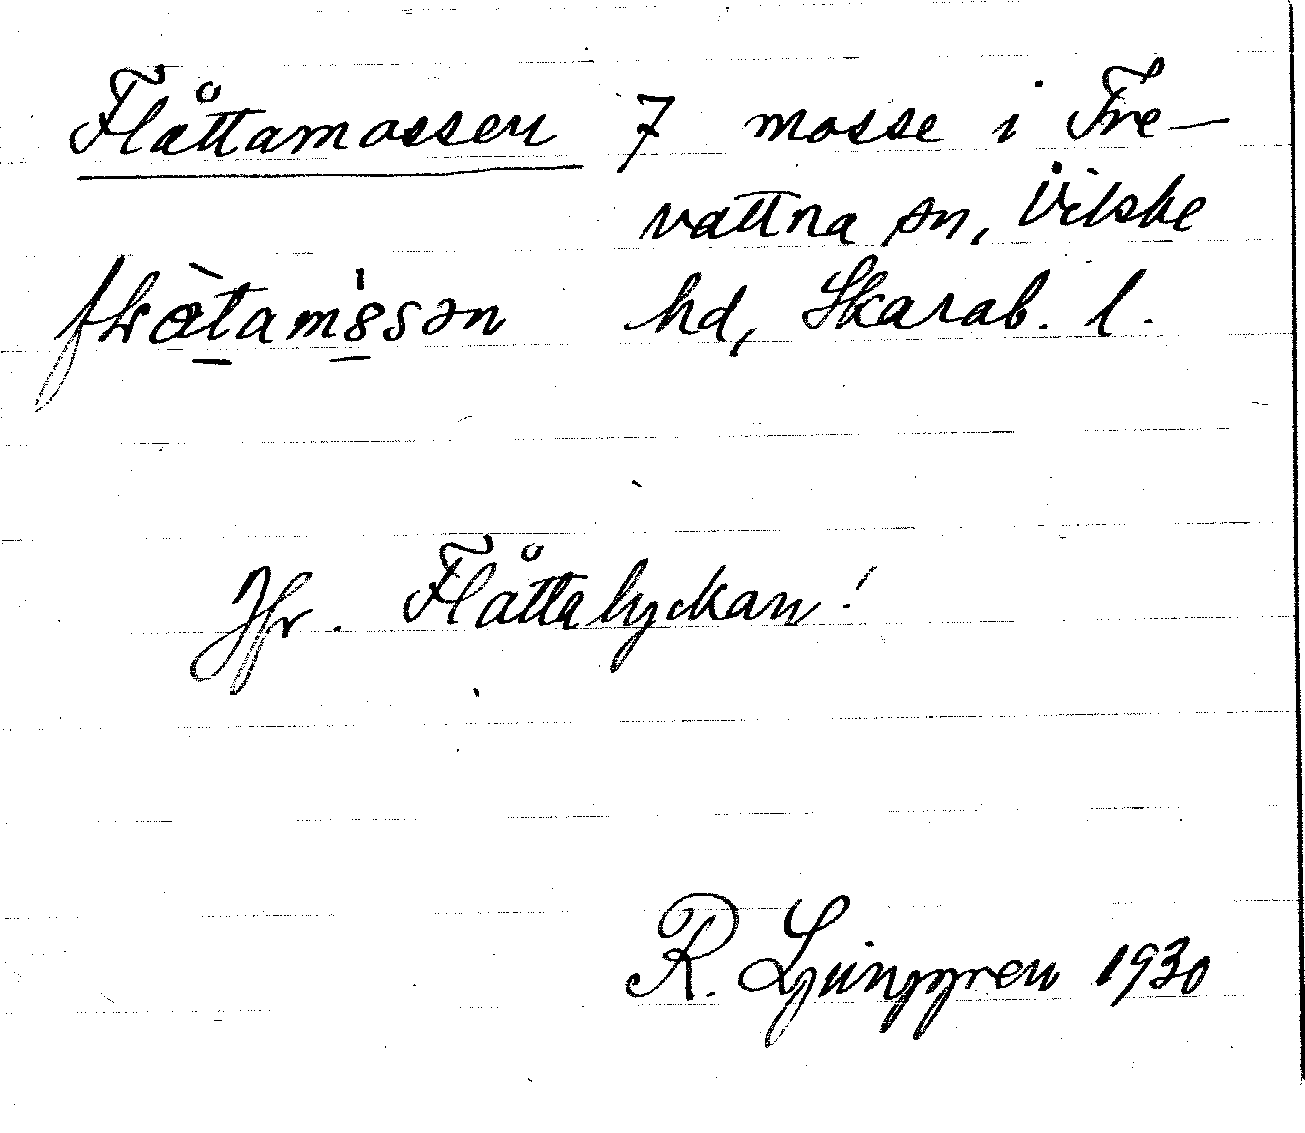 Flåttamossen 7 mosse i Fre-
vattna sn, Vilske
hd, Skarab. l.
Jfr. Flåttalyckan!
R. Ljunggren 1930